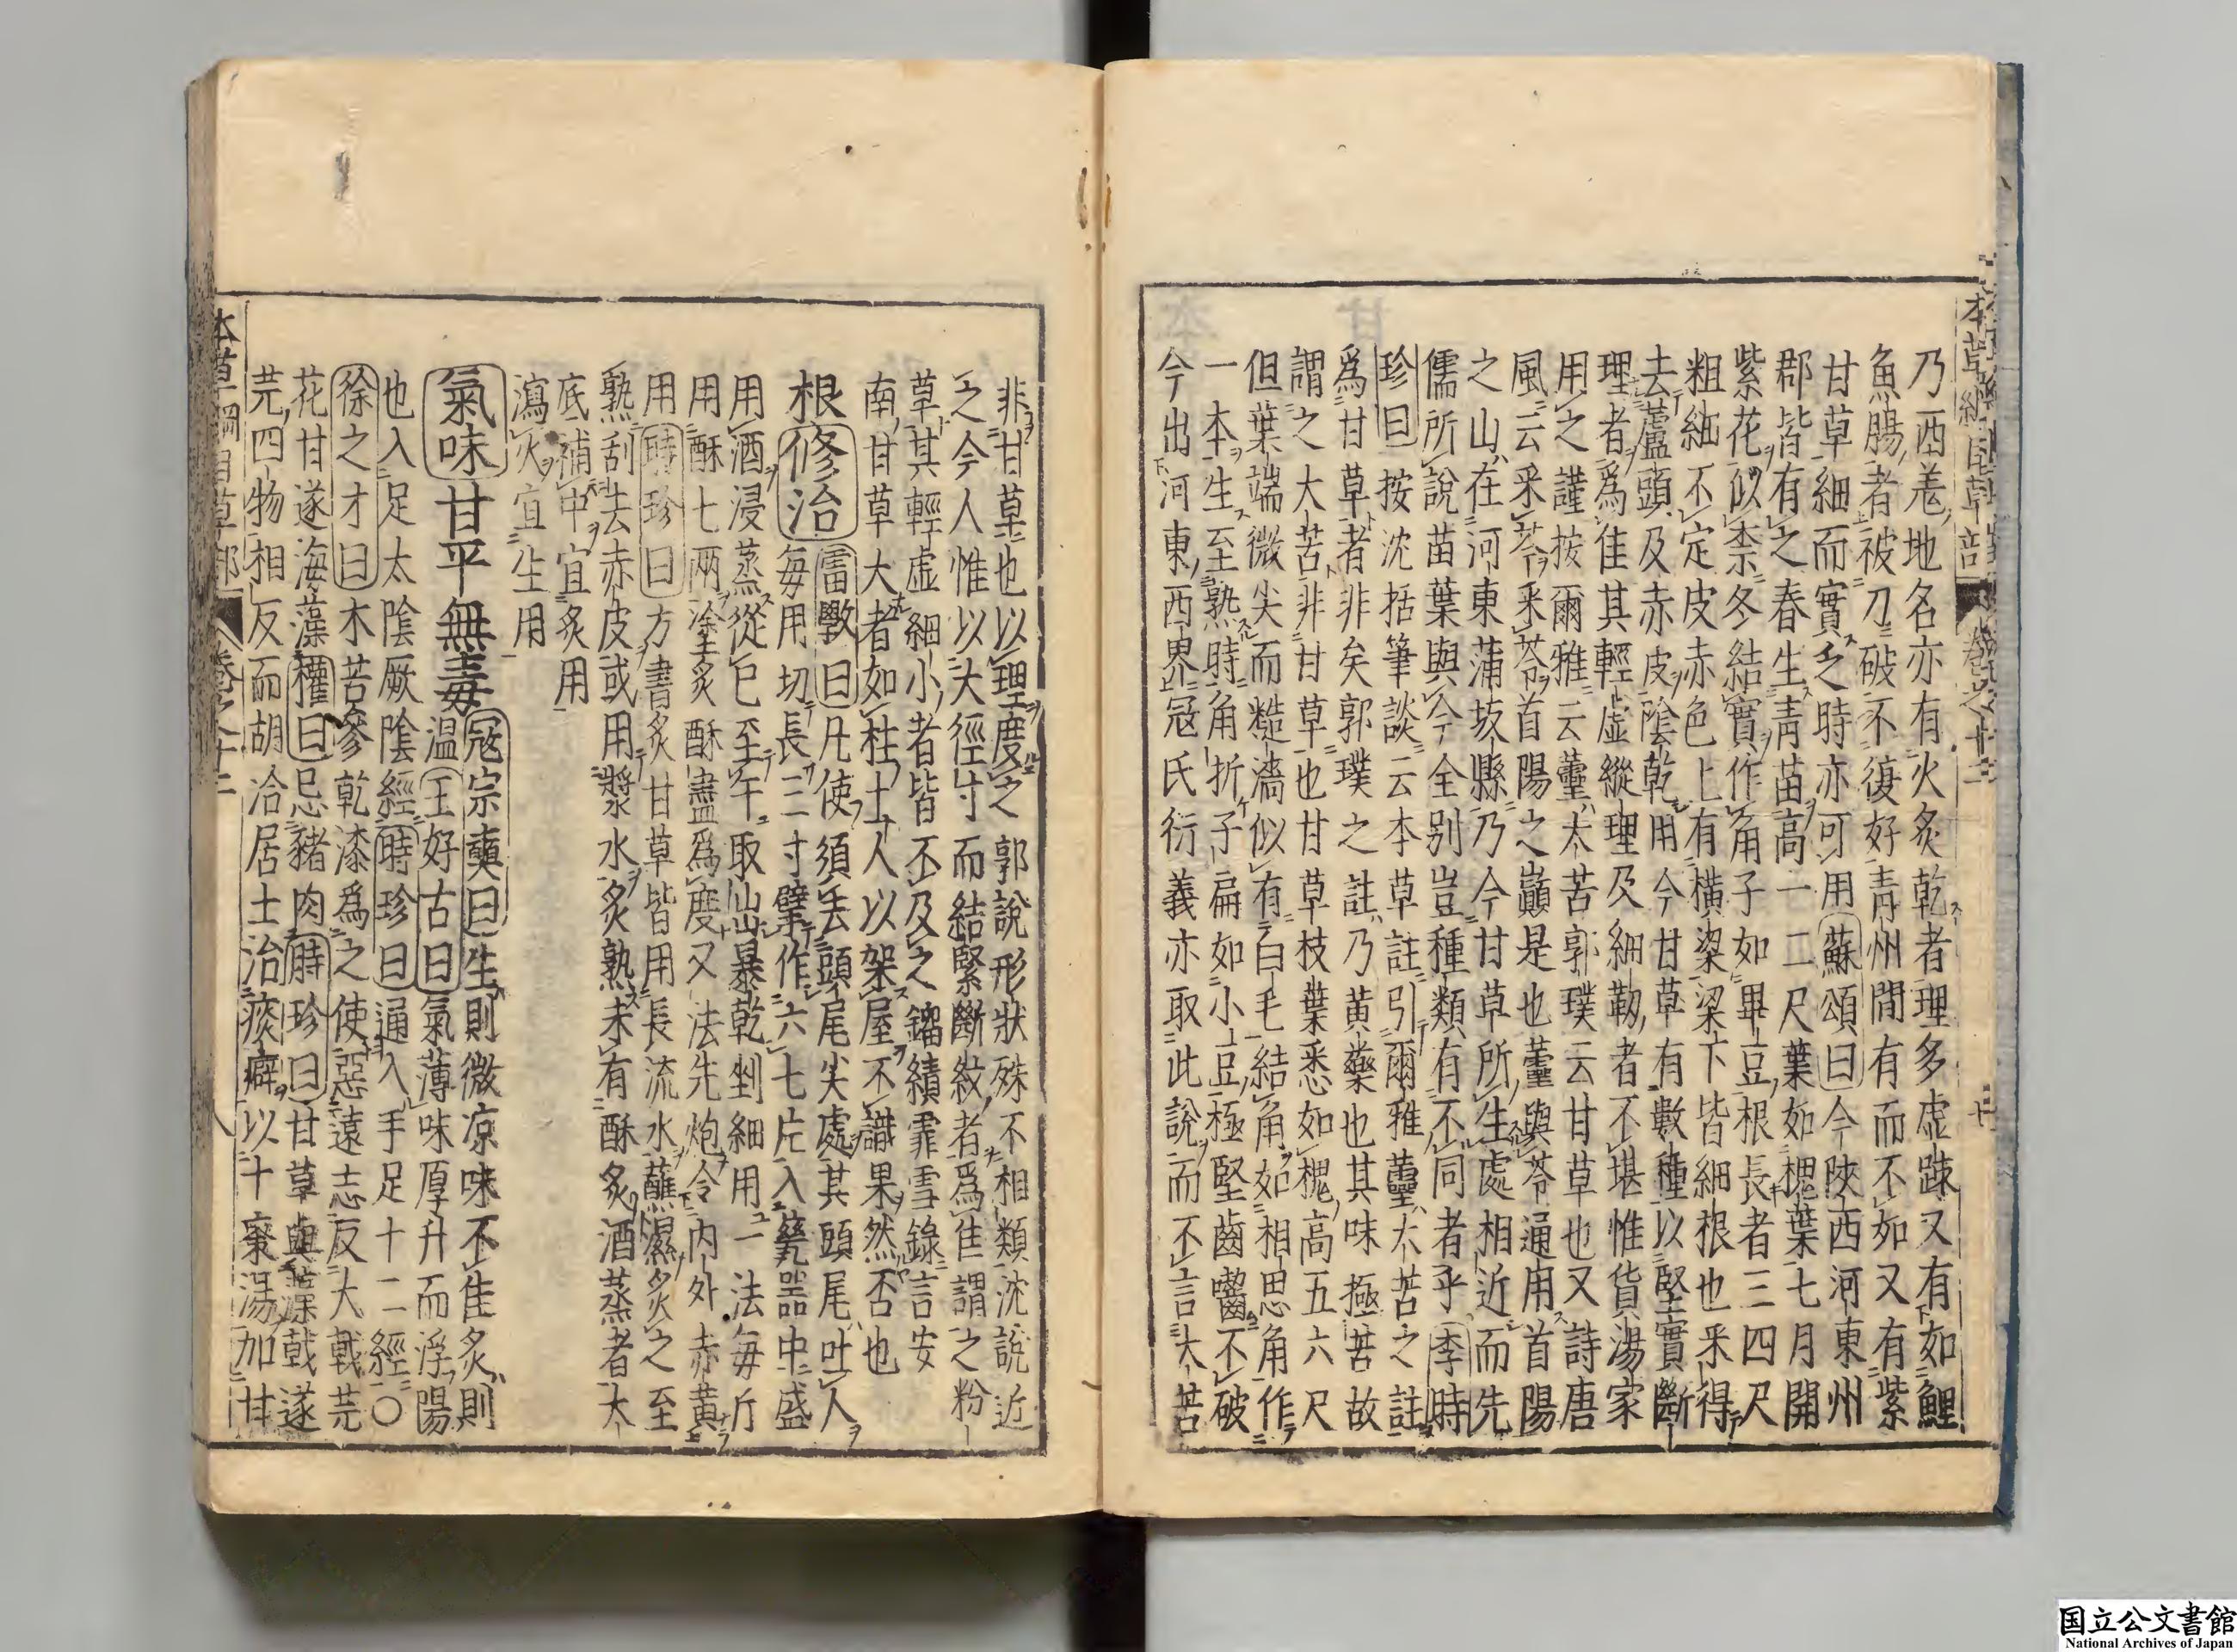 本草綱目草部 卷之十二
乃西羗地名亦有火炙乾者理多虚疎又有如鯉
魚腸者被刀破不復好青州間有而不如又有紫
甘草細而實乏時亦可用蘇頌曰今陝西河東州
郡皆有之春生青苗高一二尺葉如槐葉七月開
紫花似柰冬結實作角子如畢豆根長者三四尺
粗細不定皮赤色上有橫梁梁下皆細根也采得
去蘆頭及赤皮陰乾用今甘草有數種以堅實斷
理者為佳其輕虚縱理及細靱者不堪惟貨湯家
用之謹按爾雅云蘦太苦郭璞云甘草也又詩唐
風云采苓采苓首陽之巔是也蘦與苓通用首陽
之山在河東蒲坂縣乃今甘草所生處相近而先
儒所說苗葉與今全别豈種類有不同者乎李時
珍曰按沈括筆談云本草註引爾雅蘦大苦之註
爲甘草者非矣郭璞之註乃黄藥也其味極苦故
謂之大苦非甘草也甘草枝葉悉如槐高五六尺
但葉端微尖而糙濇似有白毛結角如相思角作
一本生至熟時角折子扁如小豆極堅齒嚙不破
今出河東西界冦氏衍義亦取此說而不言大苦
非甘草也以理度之郭說形狀殊不相類沈說近
之今人惟以大徑寸而結緊斷紋者爲佳謂之粉
草其輕虚細小者皆不及之鎦績霏雪錄言安
南甘草大者如柱土人以架屋不識果然否也
根修治雷斆曰凡使須去頭尾尖處其頭尾吐人
每用切長三寸擘作六七片入甆器中盛
用酒浸蒸從巳至午取出暴乾剉細用一法每斤
用酥七兩塗炙酥盡爲度又法先炮令內外赤黄
用時珍曰方書炙甘草皆用長流水蘸濕炙之至
熟刮去赤皮或用漿水炙熟未有酥炙酒蒸者大
底補中宜炙用
瀉火宜生用
氣味甘平無毒冦宗奭曰生則微凉味不佳炙則
溫王好古曰氣薄味厚升而浮陽
也入足太陰厥陰經時珍曰通入手足十二經○
徐之才曰木苦參乾漆爲之使惡遠志反大戟芫
花甘遂海藻權曰忌豬肉時珍曰甘草與藻戟遂
芫四物相反而胡洽居士治痰癖以十棗湯加甘
本草綱目草部 卷之十二 八
国立公文書館
National Archives of Japan